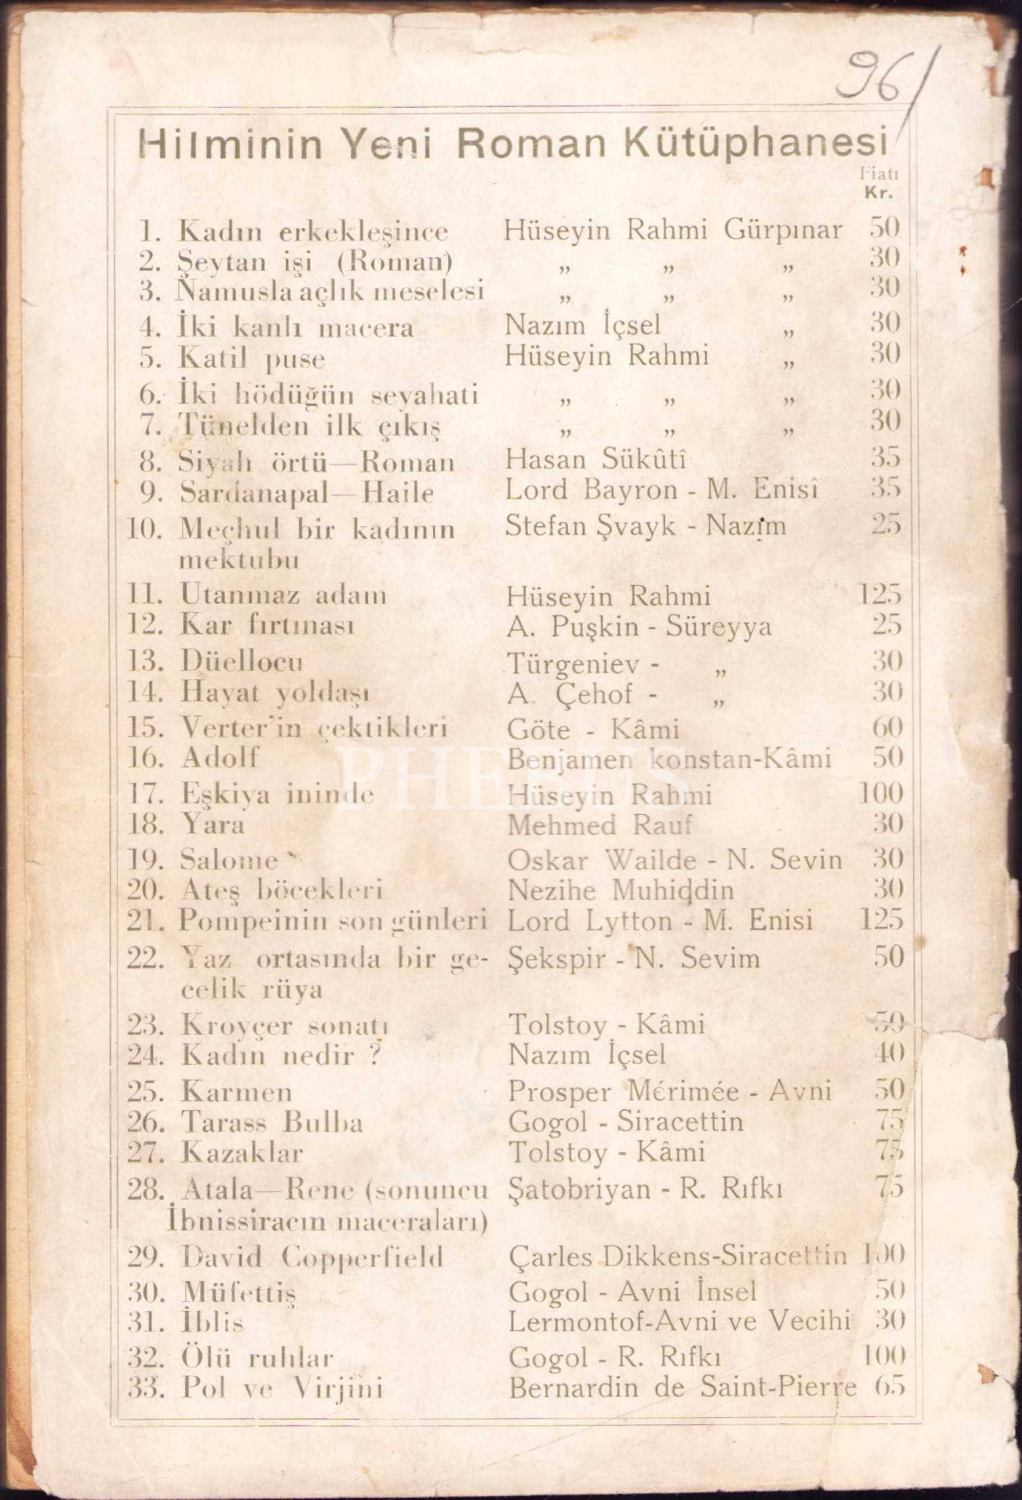 96/
Hilminin Yeni Roman Kütüphanesi
Fiatı
Kr.
1. Kadın erkekleşince Hüseyin Rahmi Gürpınar 50
2. Şeytan işi (Roman) „ „ „ 30
3. Namusla açlık meselesi „ „ „ 30
4. İki kanlı macera Nazım İçsel „ 30
5. Katil puse Hüseyin Rahmi „ 30
6. İki hödüğün seyahati „ „ „ 30
7. Tünelden ilk çıkış „ „ „ 30
8. Siyah örtü—Roman Hasan Sükûtî 35
9. Sardanapal—Haile Lord Bayron - M. Enisî 35
10. Meçhul bir kadının Stefan Şvayk - Nazım 25
mektubu
11. Utanmaz adam Hüseyin Rahmi 125
12. Kar fırtınası A. Puşkin - Süreyya 25
13. Düellocu Türgeniev - „ 30
14. Hayat yoldaşı A. Çehof - „ 30
15. Verter'in çektikleri Göte - Kâmi 60
16. Adolf Benjamen konstan-Kâmi 50
17. Eşkiya ininde Hüseyin Rahmi 100
18. Yara Mehmed Rauf 30
19. Salome Oskar Wailde - N. Sevin 30
20. Ateş böcekleri Nezihe Muhiddin 30
21. Pompeinin son günleri Lord Lytton - M. Enisi 125
22. Yaz ortasında bir ge- Şekspir - N. Sevim 50
celik rüya
23. Kroyçer sonatı Tolstoy - Kâmi 50
24. Kadın nedir ? Nazım İçsel 40
25. Karmen Prosper Mérimée - Avni 50
26. Tarass Bulba Gogol - Siracettin 75
27. Kazaklar Tolstoy - Kâmi 75
28. Atala—Rene (sonuncu Şatobriyan - R. Rıfkı 75
İbnissiracın maceraları)
29. David Copperfield Çarles Dikkens-Siracettin 100
30. Müfettiş Gogol - Avni İnsel 50
31. İblis Lermontof-Avni ve Vecihi 30
32. Ölü ruhlar Gogol - R. Rıfkı 100
33. Pol ve Virjini Bernardin de Saint-Pierre 65